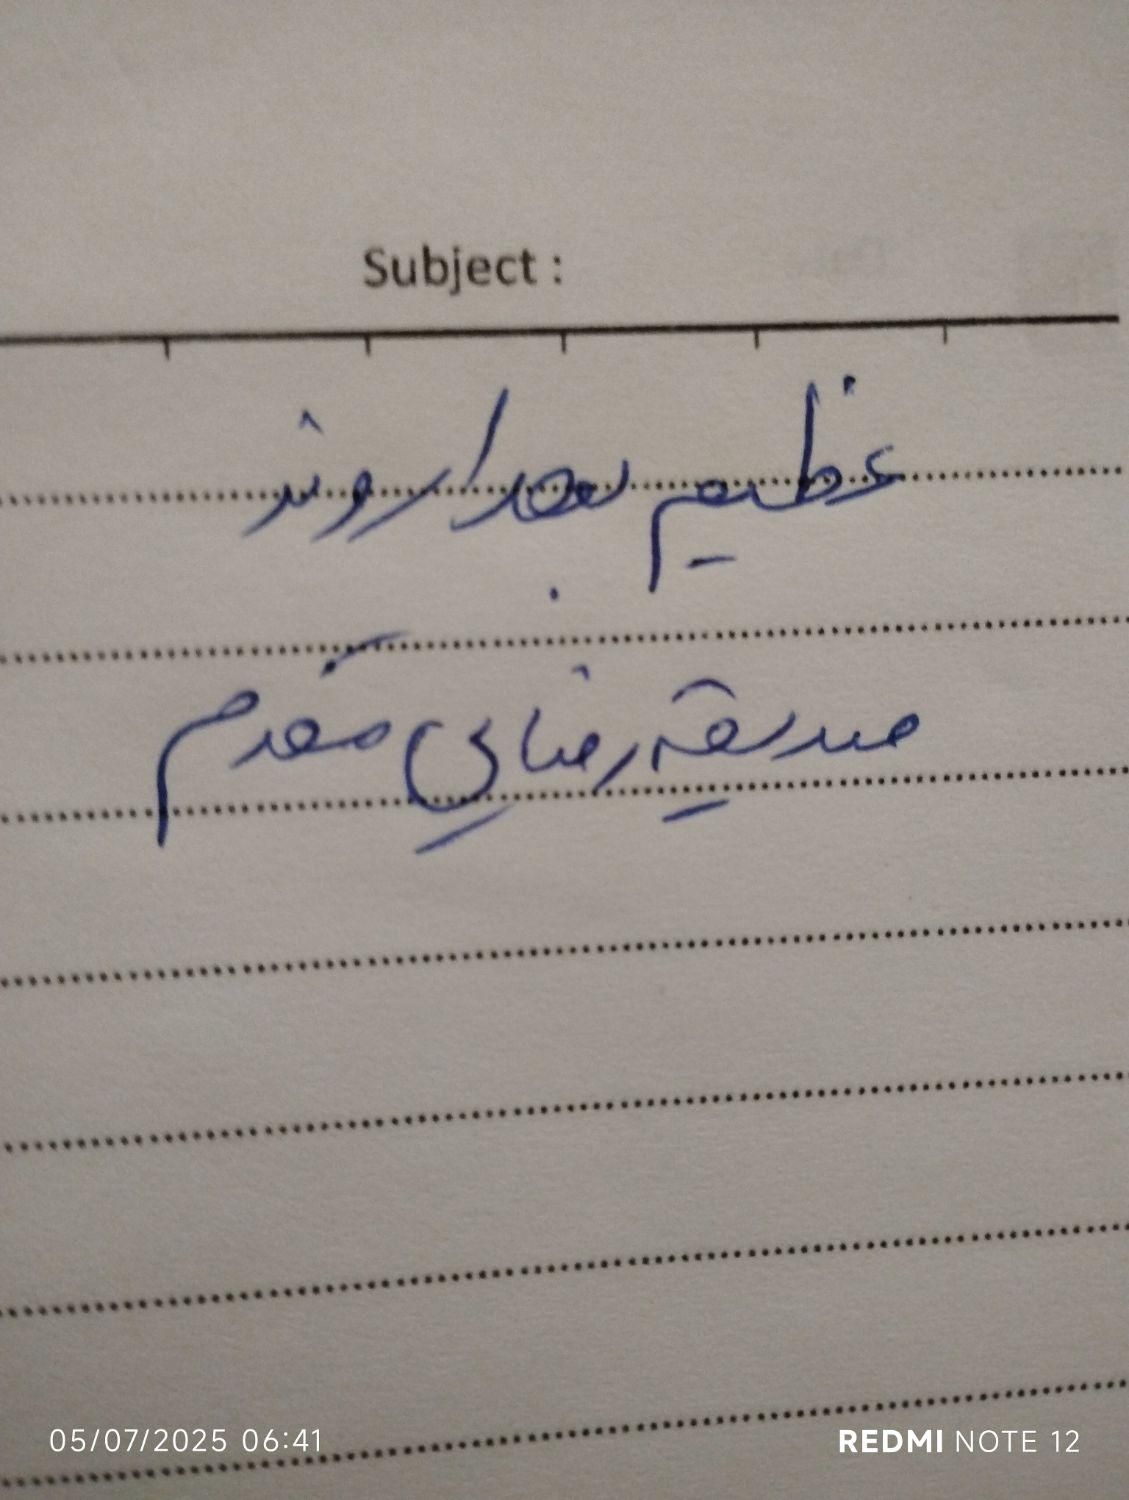 Subject :
عظیم بهداروند
صدیقه رضایی مقدم
05/07/2025 06:41
REDMI NOTE 12